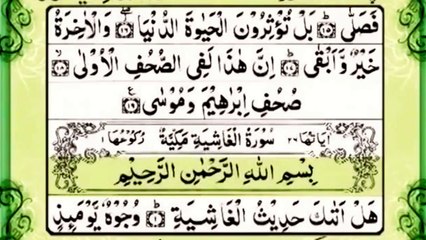 فَصَلّٰى ۝۱۵ بَلْ تُؤْثِرُوْنَ الْحَيٰوةَ الدُّنْيَا ۝۱۶ وَالْاٰخِرَةُ
خَيْرٌ وَّاَبْقٰى ۝۱۷ اِنَّ هٰذَا لَفِى الصُّحُفِ الْاُوْلٰى ۝۱۸
صُحُفِ اِبْرٰهِيْمَ وَمُوْسٰى ۝۱۹
اٰيَاتُهَا ۲۶ سُوْرَةُ الْغَاشِيَةِ مَكِّيَّةٌ رُكُوْعُهَا ۱
بِسْمِ اللهِ الرَّحْمٰنِ الرَّحِيْمِ
هَلْ اَتٰىكَ حَدِيْثُ الْغَاشِيَةِ ۝۱ وُجُوْهٌ يَّوْمَئِذٍ